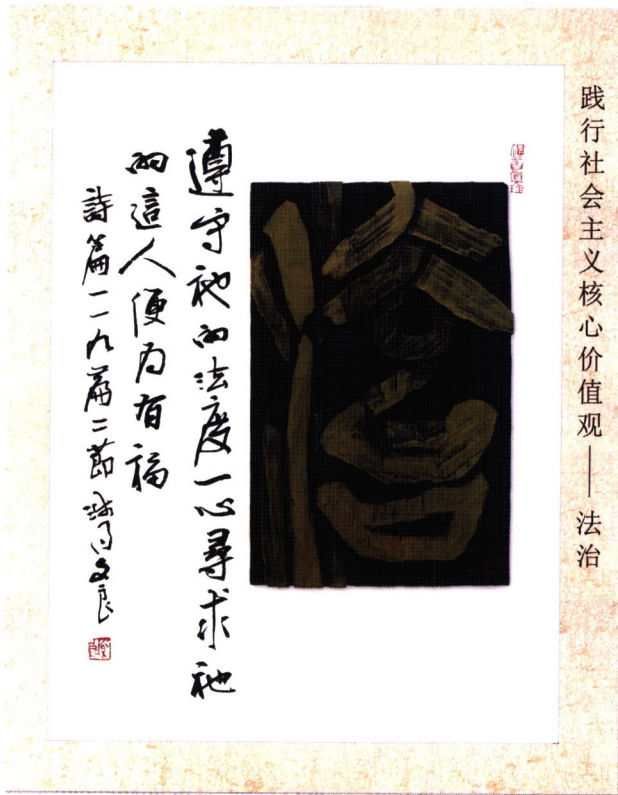 践行社会主义核心价值观——法治
遵守祂的法度一心尋求祂
的這人便为有福
詩篇一一九篇二節